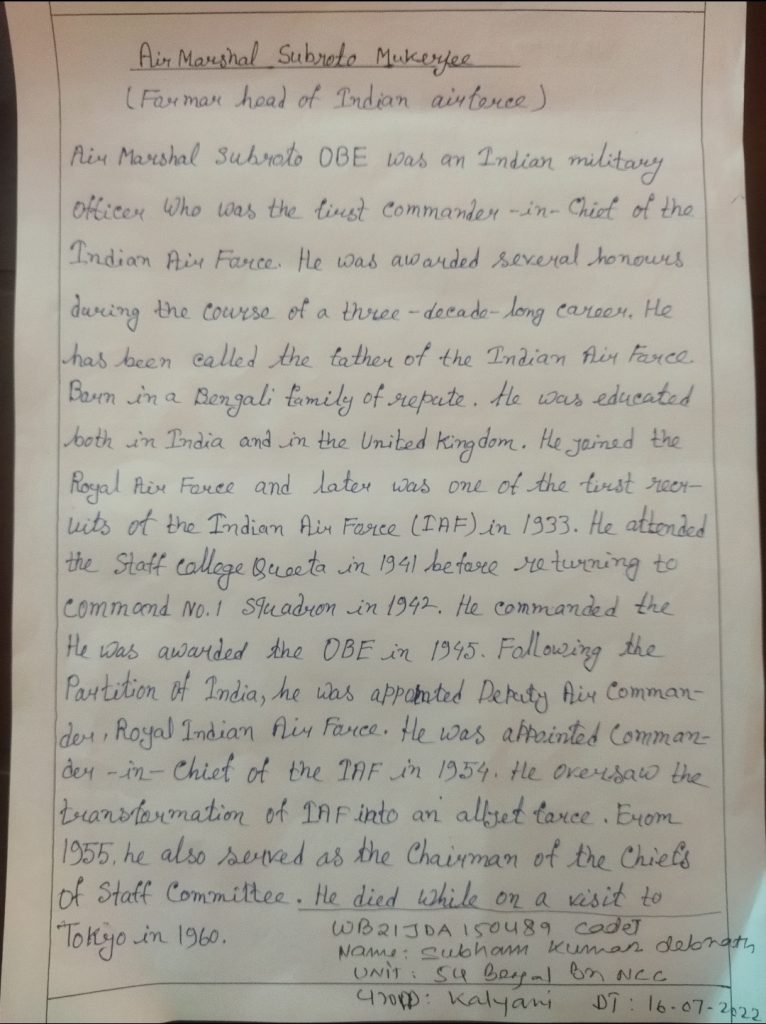 Air Marshal Subroto Mukerjee
(Farmar head of Indian airforce)
Air Marshal Subroto OBE was an Indian military
officer Who was the first commander-in-Chief of the
Indian Air Farce. He was awarded several honours
during the course of a three-decade-long career. He
has been called the father of the Indian Air Farce.
Barn in a Bengali family of repute. He was educated
both in India and in the United Kingdom. He joined the
Royal Air Farce and later was one of the first recr-
uits of the Indian Air Farce (IAF) in 1933. He attended
the Staff callege Queeta in 1941 befare returning to
command No.1 Squadron in 1942. He commanded the
He was awarded the OBE in 1945. Fallowing the
Partition of India, he was appointed Deputy Air Comman-
der, Royal Indian Air Farce. He was appointed Comman-
der-in-Chief of the IAF in 1954. He oversaw the
transformation of IAF into an alljet farce. From
1955, he also served as the Chairman of the Chiefs
of Staff Committee. He died while on a visit to
Tokyo in 1960.
WB21JDA150489 cadet
Name: Subham Kumar debnath
UNIT: 54 Bengal Bn NCC
Group: Kalyani DT: 16-07-2022